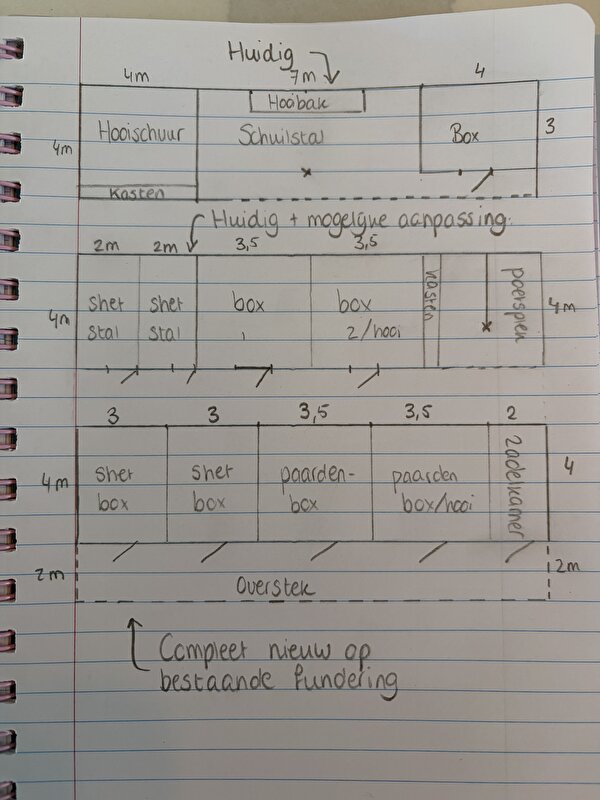 Huidig
4m 7m 4
Hooibak
4m Hooischuur Schuilstal Box 3
Kasten
Huidig + mogelijke aanpassing.
2m 2m 3,5 3,5
4m shet stal shet stal box 1 box 2/hooi kasten poetsplen 4m
3 3 3,5 3,5 2
4m shet box shet box paarden- box paarden box/hooi Zadelkamer 4
2m Overstek 2m
Compleet nieuw op
bestaande fundering